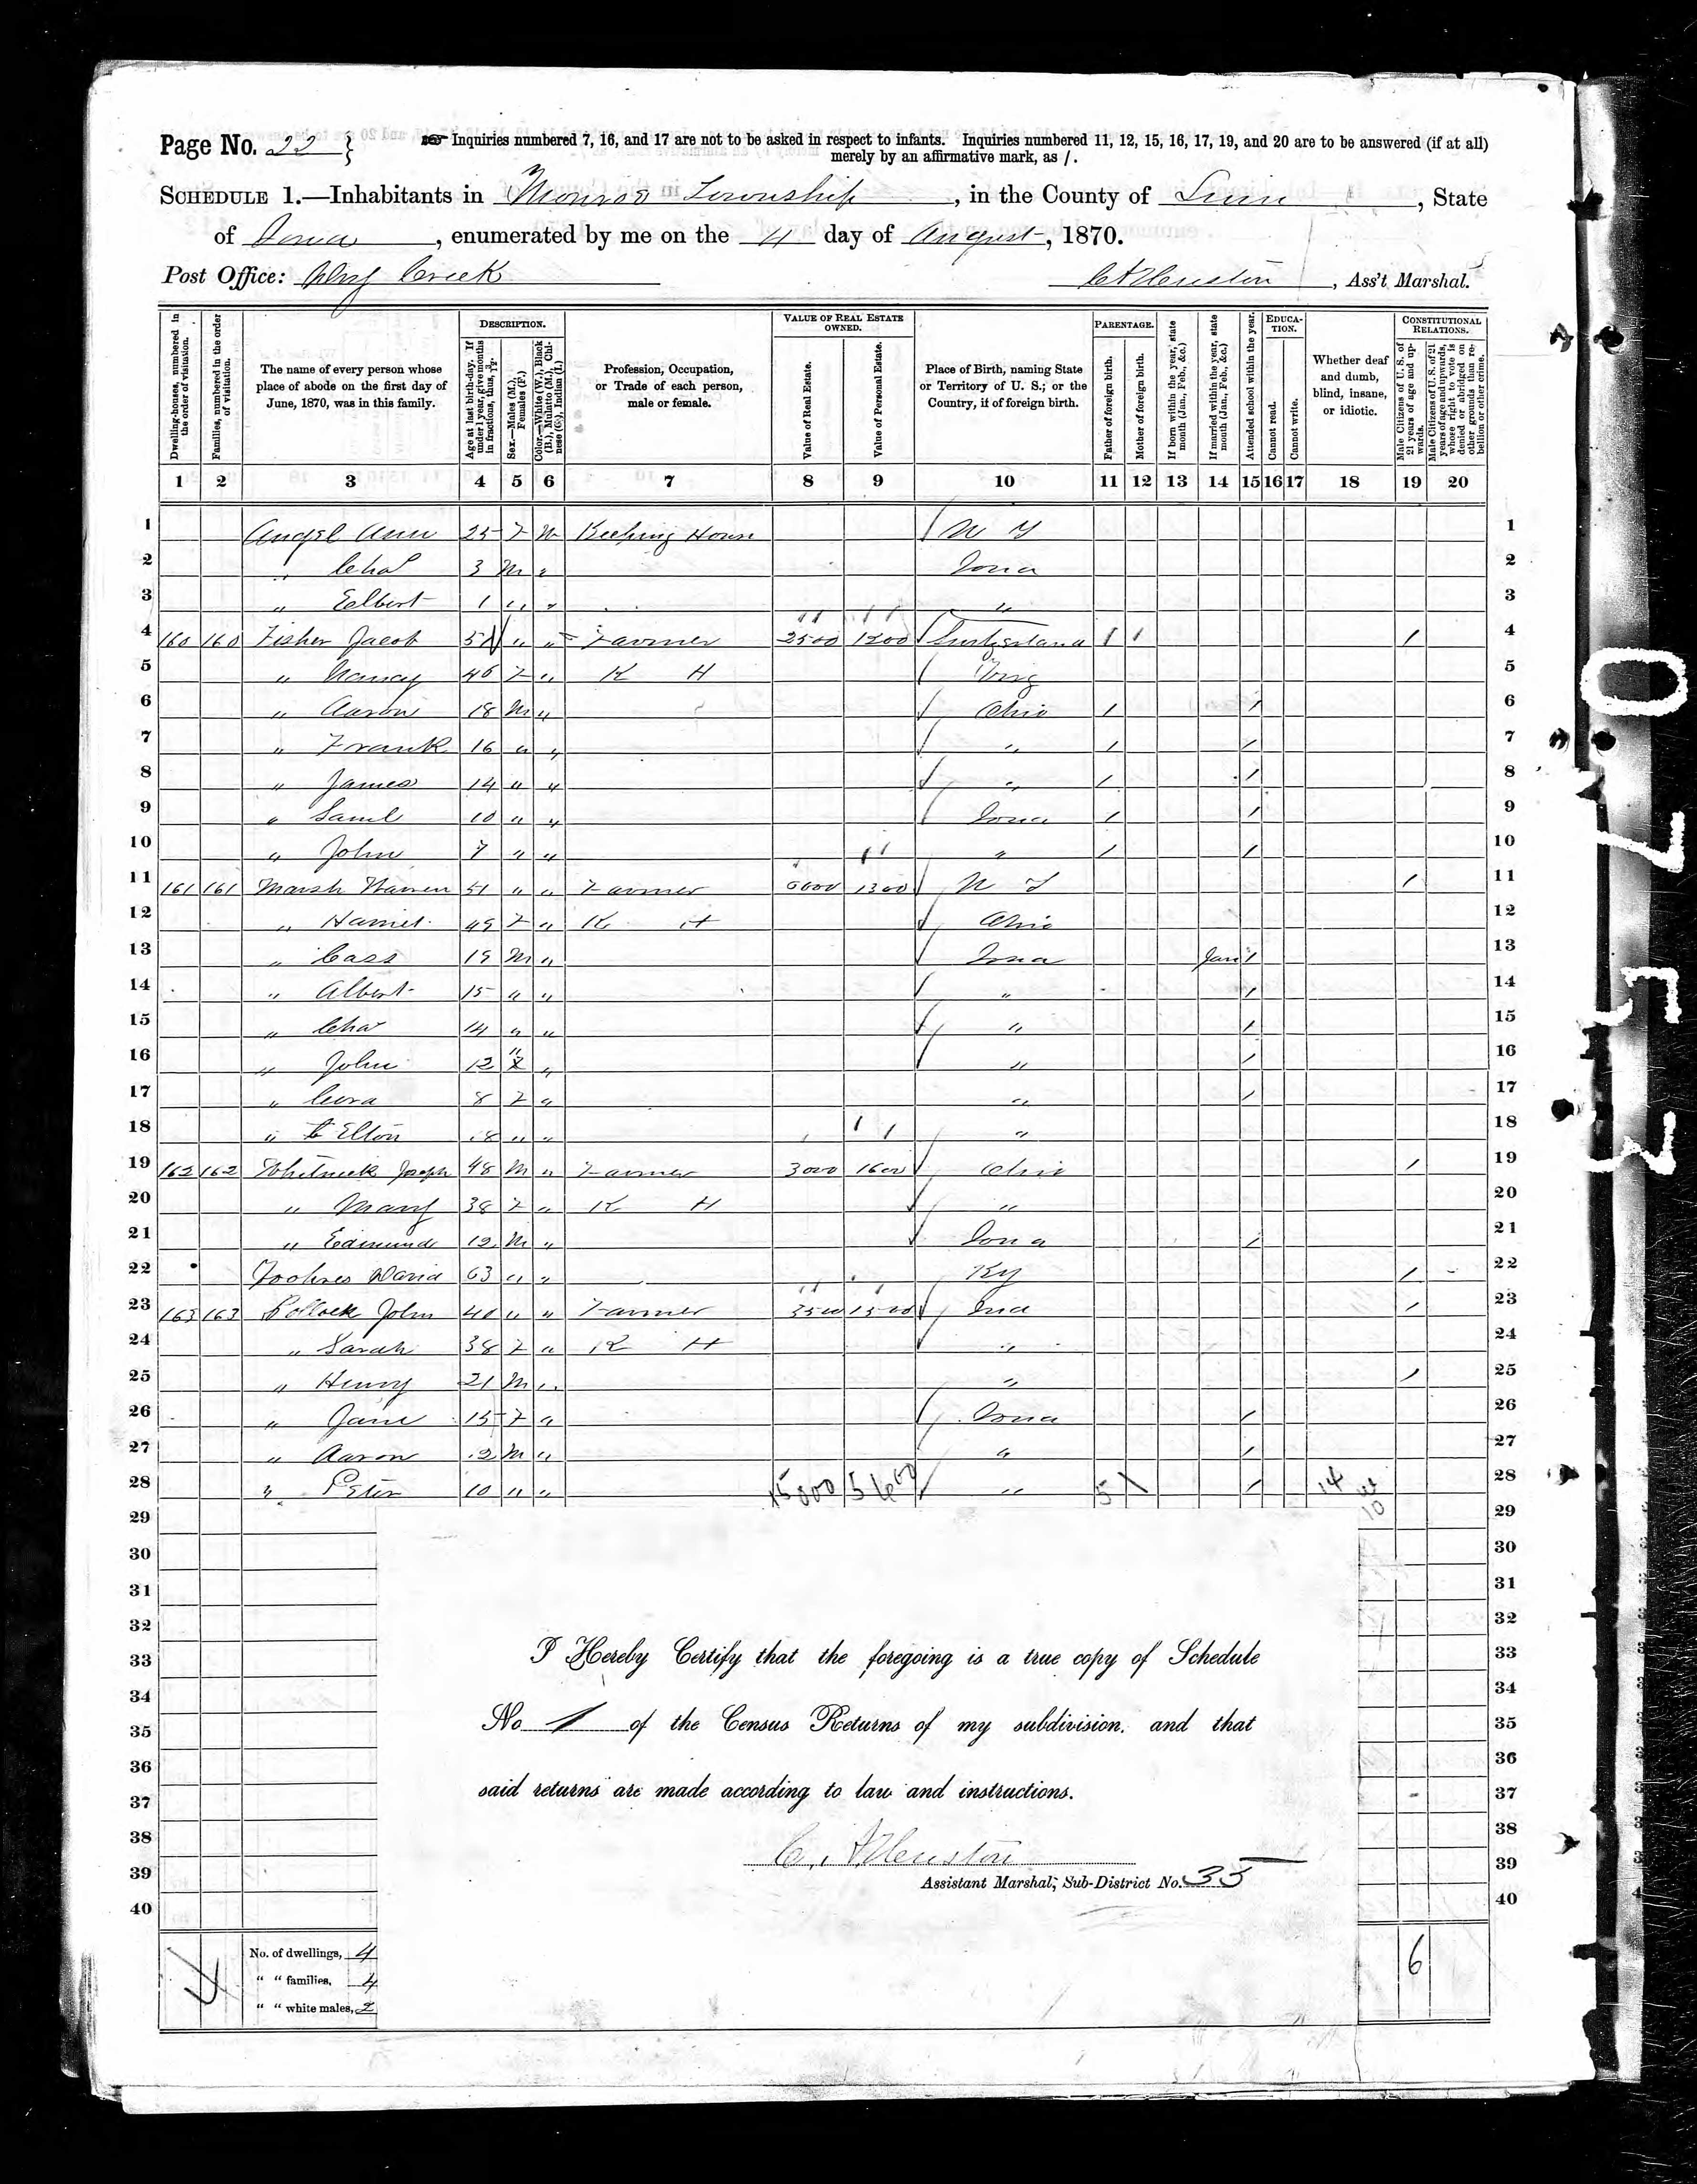 Page No. 22 } Inquiries numbered 7, 16, and 17 are not to be asked in respect to infants. Inquiries numbered 11, 12, 15, 16, 17, 19, and 20 are to be answered (if at all)
merely by an affirmative mark, as /.
SCHEDULE 1.—Inhabitants in Monroe Township, in the County of Linn, State
of Iowa, enumerated by me on the 4 day of August, 1870.
Post Office: Creek
, Ass't Marshal.
Dwelling-houses, numbered in the order of visitation.
Families, numbered in the order of visitation.
The name of every person whose place of abode on the first day of June, 1870, was in this family.
DESCRIPTION.
Age at last birth-day. If under 1 year, give months in fractions, thus, 3/12.
Sex.—Males (M.), Females (F.)
Color.—White (W.), Black (B.), Mulatto (M.), Chinese (C.), Indian (I.)
Profession, Occupation, or Trade of each person, male or female.
VALUE OF REAL ESTATE OWNED.
Value of Real Estate.
Value of Personal Estate.
Place of Birth, naming State or Territory of U. S.; or the Country, if of foreign birth.
PARENTAGE.
Father of foreign birth.
Mother of foreign birth.
If born within the year, state month (Jan., Feb., &c.)
If married within the year, state month (Jan., Feb., &c.)
Attended school within the year.
EDUCATION.
Cannot read.
Cannot write.
Whether deaf and dumb, blind, insane, or idiotic.
CONSTITUTIONAL RELATIONS.
Male Citizens of U. S. of 21 years of age and upwards.
Male Citizens of U. S. of 21 years of age and upwards, whose right to vote is denied or abridged on other grounds than rebellion or other crime.
1 2 3 4 5 6 7 8 9 10 11 12 13 14 15 16 17 18 19 20
1 Angel Ann 25 F W Keeping House N Y 1
2 " Chas 3 M " Iowa 2
3 " Elbert 1 " " " 3
4 160 160 Fisher Jacob " " Farmer 2500 1200 Switzerland / / / 4
5 " Nancy 46 F " K H Virg 5
6 " Aaron 18 M " Ohio / / 6
7 " Frank 16 " " " / / 7
8 " James 14 " " " / / 8
9 " Saml 10 " " Iowa / / 9
10 " John 7 " " " / / 10
11 161 161 Marsh Warren 51 " " Farmer 1300 N Y / 11
12 " Harriet 49 F " K H Ohio 12
13 " Cass 19 M " Iowa Jan / 13
14 " Albert 15 " " " / 14
15 " Chas 14 " " " / 15
16 " John 12 " " " / 16
17 " Cora 8 F " " / 17
18 " Elton 8 " " " 18
19 162 162 Joseph 48 M " Farmer 3000 1600 Ohio / 19
20 " Mary 38 F " K H " 20
21 " Edmund 12 M " Iowa / 21
22 David 63 " " Ky / 22
23 163 163 Pollock John 40 " " Farmer 3500 1500 Ind / 23
24 " Sarah 38 F " K H " 24
25 " Henry 21 M " " / 25
26 " Jane 15 F " Iowa / 26
27 " Aaron 12 M " " / 27
28 " Peter 10 " " 15000 5600 " 5 1 / 14 28
29 10 29
30 30
31 31
32 32
33 33
34 34
35 35
36 36
37 37
38 38
39 39
40 40
I Hereby Certify that the foregoing is a true copy of Schedule
No 1 of the Census Returns of my subdivision, and that
said returns are made according to law and instructions.
Assistant Marshal, Sub-District No. 35
No. of dwellings, 4
" " families, 4
" " white males, 2
6